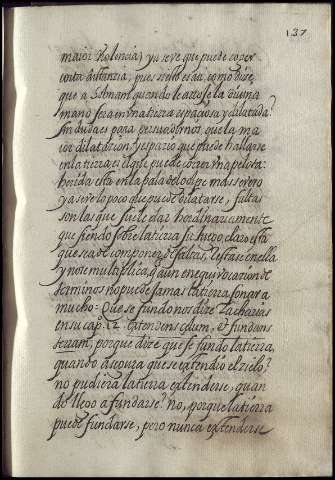 137
maior violencia) ya se ve que puede coxer
corta distanzia, pues si esto es asi, como dize
que a Sobnam quando le arroje la divina
mano sera en vna tierra espaçiosa y dilatada?
sin duda es para persuadirnos, que la ma
ior dilatazion, y espazio que puede hallarse
en la tierra es el que puede correr vna pelota
herida esta en la pala de lo dize mas severo
ya se ve lo poco que puede dilatarse, faltas
son las que suele dar hordinariamente
que siendo sobre la tierra su juego, claro esta
que sea de componer de faltas, estas en ella
y no te multiplica, q aun en equivocazion de
terminos no puede jamas la tierra sonar a
mucho. Que se fundo nos dize Zacharias
en su cap. 12. extendens celum, et fundans
terram, porque dize que se fundo la tierra,
quando asegura que se extendio el zielo?
no pudiera la tierra extenderse, quan
do llego a fundarse? no, porque la tierra
puede fundarse, pero nunca extenderse